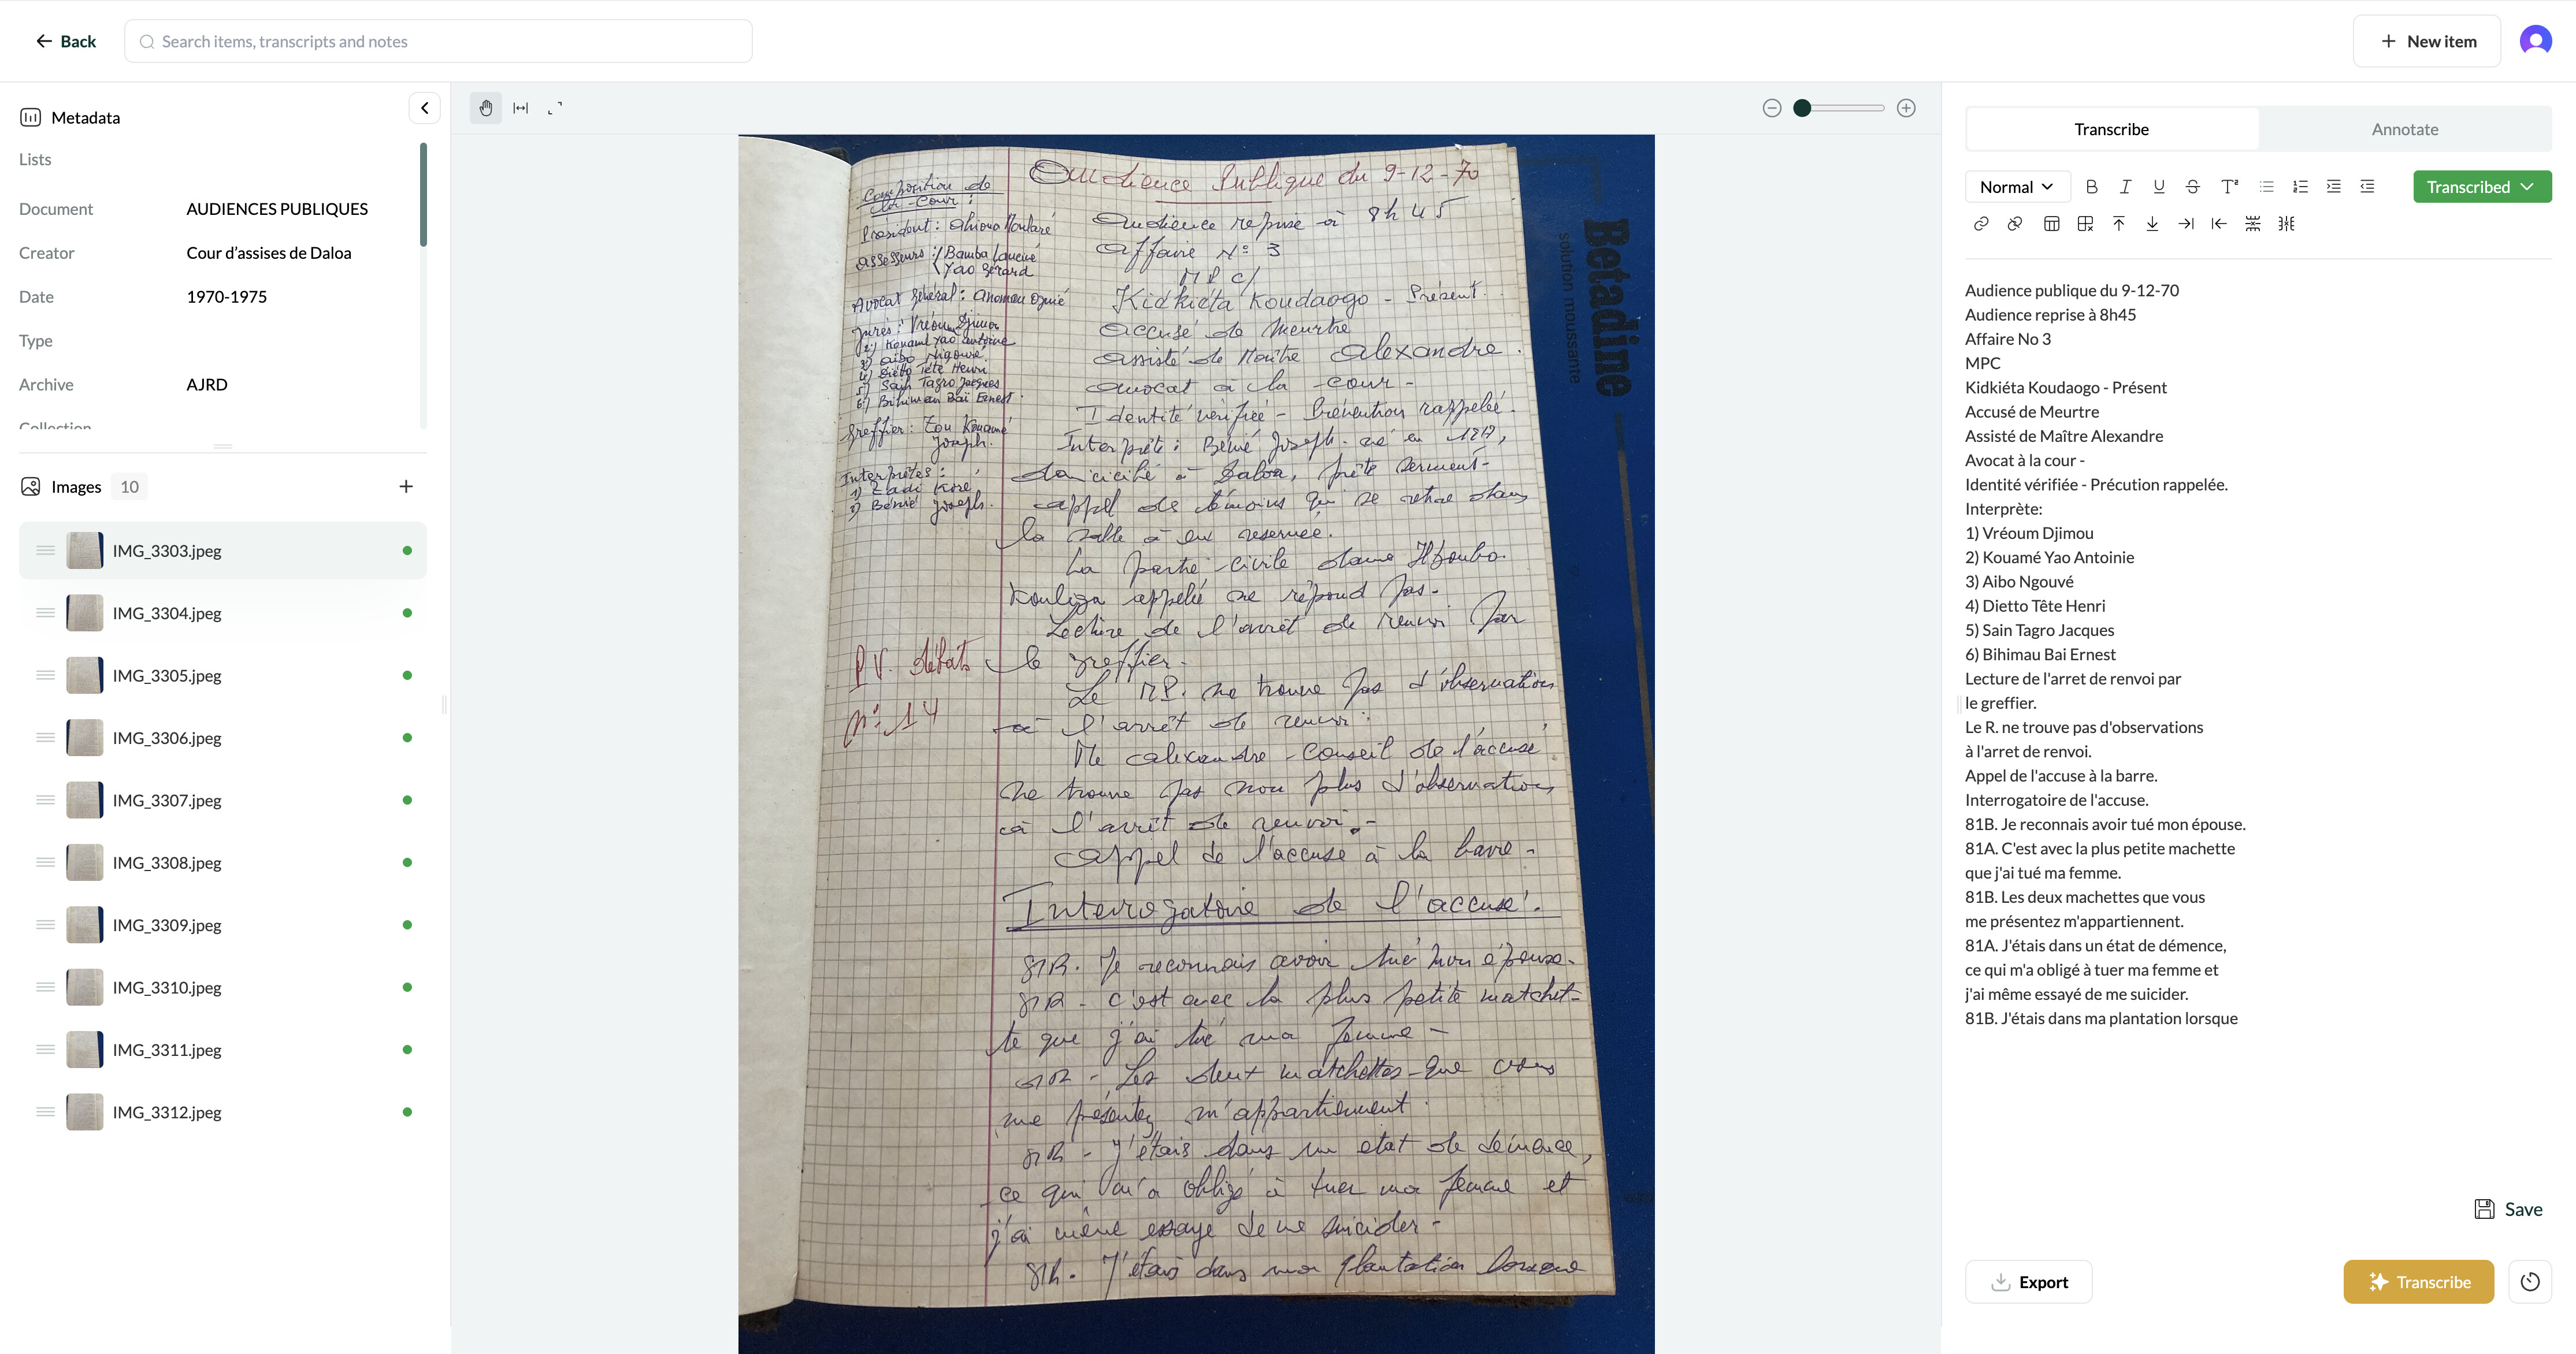 Back
Search items, transcripts and notes
New item
Metadata
Lists
Document AUDIENCES PUBLIQUES
Creator Cour d’assises de Daloa
Date 1970-1975
Type
Archive AJRD
Collection
Images 10
IMG_3303.jpeg
IMG_3304.jpeg
IMG_3305.jpeg
IMG_3306.jpeg
IMG_3307.jpeg
IMG_3308.jpeg
IMG_3309.jpeg
IMG_3310.jpeg
IMG_3311.jpeg
IMG_3312.jpeg
Composition de
la Cour :
Président :
Assesseurs : Bamba
Yao Gérard
Avocat Général :
Jurés : Vréoum Djimou
2) Kouamé Yao Antoine
3) Aibo
4) Tété Henri
5) Tagro Jacques
6) Baï Ernest
Greffier : Zou Kouamé
Joseph.
Interprètes :
1) Zadi Koré
2) Bémé Joseph.
P.V. débats
N° 14
Audience Publique du 9-12-70
Audience reprise à 8h 45
Affaire N° 3
M P C/
Kidkiéta Koudaogo - Présent.
Accusé de Meurtre
Assisté de Maître Alexandre.
Avocat à la Cour -
Identité vérifiée - Prévention rappelée.
Interprète : Bémé Joseph. né en
domicilié à Daloa, prête serment -
Appel des témoins qui se retire dans
la salle à eux reservée.
La partie civile dame
Kouliga appelée ne répond pas.
Lecture de l'arrêt de renvoi par
le greffier.
Le M.P. ne trouve pas d'observations
à l'arrêt de renvoi.
Me Alexandre - Conseil de l'accusé
ne trouve pas non plus d'observations
à l'arrêt de renvoi. -
Appel de l'accusé à la barre -
Interrogatoire de l'accusé.
SIR. Je reconnais avoir tué mon épouse.
SIR - C'est avec la plus petite matchet-
te que j'ai tué ma femme -
SIR - Les deux matchettes que vous
me présentez m'appartiennent.
SIR - J'étais dans un etat de démence,
ce qui m'a obligé à tuer ma femme et
j'ai même essayé de me suicider -
SIR. J'étais dans ma plantation lorsque
Betadine
solution moussante
Transcribe
Annotate
Normal
Transcribed
Audience publique du 9-12-70
Audience reprise à 8h45
Affaire No 3
MPC
Kidkiéta Koudaogo - Présent
Accusé de Meurtre
Assisté de Maître Alexandre
Avocat à la cour -
Identité vérifiée - Précution rappelée.
Interprète:
1) Vréoum Djimou
2) Kouamé Yao Antoinie
3) Aibo Ngouvé
4) Dietto Tête Henri
5) Sain Tagro Jacques
6) Bihimau Bai Ernest
Lecture de l'arret de renvoi par
le greffier.
Le R. ne trouve pas d'observations
à l'arret de renvoi.
Appel de l'accuse à la barre.
Interrogatoire de l'accuse.
81B. Je reconnais avoir tué mon épouse.
81A. C'est avec la plus petite machette
que j'ai tué ma femme.
81B. Les deux machettes que vous
me présentez m'appartiennent.
81A. J'étais dans un état de démence,
ce qui m'a obligé à tuer ma femme et
j'ai même essayé de me suicider.
81B. J'étais dans ma plantation lorsque
Save
Export
Transcribe